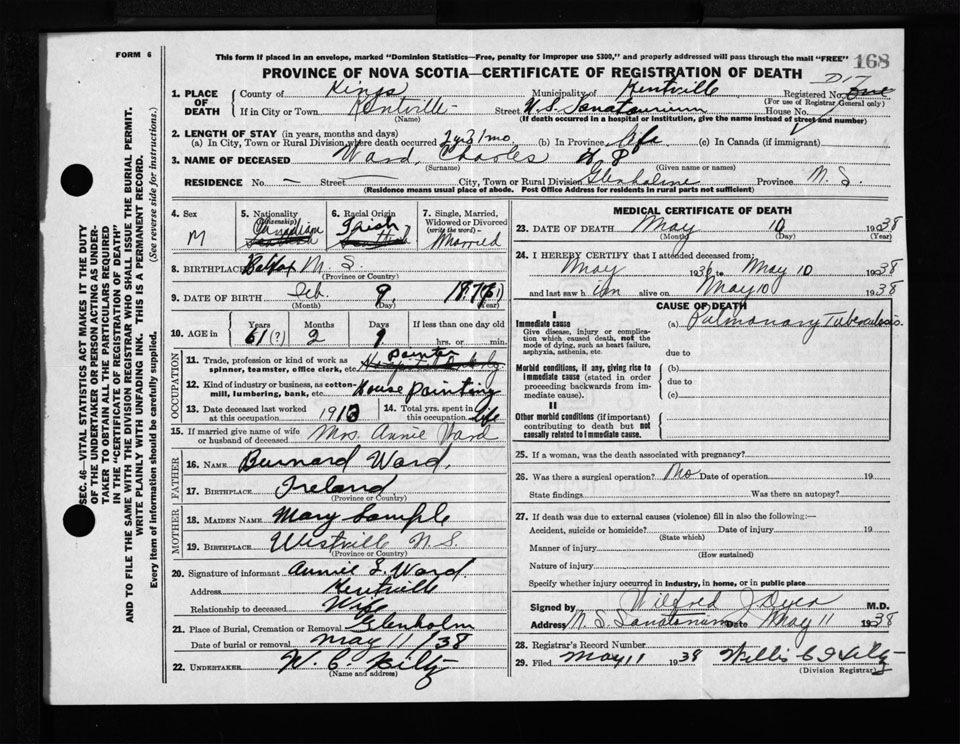 FORM 6
This form if placed in an envelope, marked "Dominion Statistics—Free, penalty for improper use $300," and properly addressed will pass through the mail "FREE"
168
PROVINCE OF NOVA SCOTIA—CERTIFICATE OF REGISTRATION OF DEATH
1. PLACE OF DEATH
County of Kings Municipality of Kentville Registered No.
(For use of Registrar General only)
If in City or Town Kentville Street N.S. Sanatorium House No.
(Name) (If death occurred in a hospital or institution, give the name instead of street and number)
2. LENGTH OF STAY (in years, months and days)
(a) In City, Town or Rural Division where death occurred 2 yrs 1 mo (b) In Province life (c) In Canada (if immigrant)
3. NAME OF DECEASED Ward, Charles
(Surname) (Given name or names)
RESIDENCE No. — Street — City, Town or Rural Division Glenholme Province N.S.
(Residence means usual place of abode. Post Office Address for residents in rural parts not sufficient)
4. Sex M
5. Nationality (Citizenship) Canadian
6. Racial Origin Irish
7. Single, Married, Widowed or Divorced (write the word) Married
8. BIRTHPLACE N.S.
(Province or Country)
9. DATE OF BIRTH Feb. 9,
(Month) (Day) (Year)
10. AGE in
Years Months Days If less than one day old
61 (?) 2 hrs. or min.
OCCUPATION
11. Trade, profession or kind of work as spinner, teamster, office clerk, etc. painter
12. Kind of industry or business, as cotton-mill, lumbering, bank, etc. House painting
13. Date deceased last worked at this occupation
14. Total yrs. spent in this occupation life
15. If married give name of wife or husband of deceased Mrs. Annie Ward
FATHER
16. NAME Burnard Ward,
17. BIRTHPLACE Ireland
(Province or Country)
MOTHER
18. MAIDEN NAME Mary Sample
19. BIRTHPLACE Westville N.S.
(Province or Country)
20. Signature of informant Annie Ward
Address Kentville
Relationship to deceased Wife
21. Place of Burial, Cremation or Removal Glenholm
Date of burial or removal May 11/38
22. UNDERTAKER W. C.
(Name and address)
MEDICAL CERTIFICATE OF DEATH
23. DATE OF DEATH May 10 1938
(Month) (Day) (Year)
24. I HEREBY CERTIFY that I attended deceased from:
May 1936 to May 10 1938
and last saw him alive on May 10 1938
CAUSE OF DEATH
I
Immediate cause
Give disease, injury or complication which caused death, not the mode of dying, such as heart failure, asphyxia, asthenia, etc.
(a) Pulmonary Tuberculosis.
due to
Morbid conditions, if any, giving rise to immediate cause (stated in order proceeding backwards from immediate cause).
(b)
due to
(c)
II
Other morbid conditions (if important) contributing to death but not causally related to immediate cause.
25. If a woman, was the death associated with pregnancy?
26. Was there a surgical operation? No Date of operation 19
State findings Was there an autopsy?
27. If death was due to external causes (violence) fill in also the following:—
Accident, suicide or homicide? Date of injury 19
(State which)
Manner of injury
(How sustained)
Nature of injury
Specify whether injury occurred in industry, in home, or in public place
Signed by Wilfred J Dyer M.D.
Address N.S. Sanatorium Date May 11 1938
28. Registrar's Record Number
29. Filed May 11 1938 Willis C
(Division Registrar)
SEC. 46—VITAL STATISTICS ACT MAKES IT THE DUTY
OF THE UNDERTAKER OR PERSON ACTING AS UNDER-
TAKER TO OBTAIN ALL THE PARTICULARS REQUIRED
IN THE "CERTIFICATE OF REGISTRATION OF DEATH"
AND TO FILE THE SAME WITH THE DIVISION REGISTRAR WHO SHALL ISSUE THE BURIAL PERMIT.
WRITE PLAINLY WITH UNFADING INK. THIS IS A PERMANENT RECORD.
Every item of information should be carefully supplied. (See reverse side for instructions.)